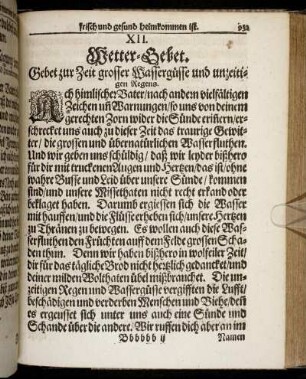 frisch und gesund heimkommen ist. 931
XII.
Wetter-Gebet.
Gebet zur Zeit grosser Wassergüsse und unzeiti-
gen Regens.
Ach himlischer Vater/nach dem vielfältigen
Zeichen uñ Warnungen/so uns von deinem
gerechten Zorn wider die Sünde erinern/er-
schrecket uns auch zu dieser Zeit das traurige Gewit-
ter/ die grossen und übernatürlichen Wasserfluthen.
Und wir geben uns schüldig/ daß wir leyder bißhero
für dir mit truckenen Augen und Hertzen/das ist/ohne
wahre Busse und Leid über unsere Sünde/ kommen
sind/und unsere Missethaten nicht recht erkand oder
beklaget haben. Darumb ergiessen sich die Wasser
mit hauffen/und die Flüsse erheben sich/unsere Hertzen
zu Thränen zu bewegen. Es wollen auch diese Was-
serfluthen den Früchten auff dem Felde grossen Scha-
den thun. Denn wir haben bißhero in wolfeiler Zeit/
dir für das tägliche Brod nicht hertzlich gedancket/und
deiner milden Wolthaten übel mißbrauchet. Die un-
zeitigen Regen und Wassergüsse vergifften die Lufft/
beschädigen und verderben Menschen und Viehe/deñ
es ergeusset sich unter uns auch eine Sünde und
Schande über die andere. Wir ruffen dich aber an im
Bbbbbb ij Namen